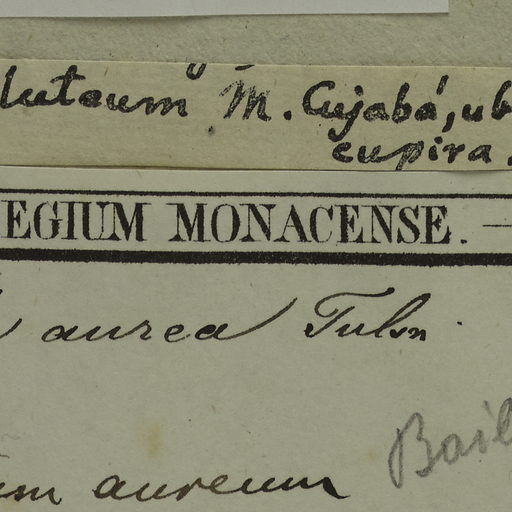 luteum M. Cujabá, ub
cupira.
EGIUM MONACENSE.
aurea Tulsn
um aureum
Bail